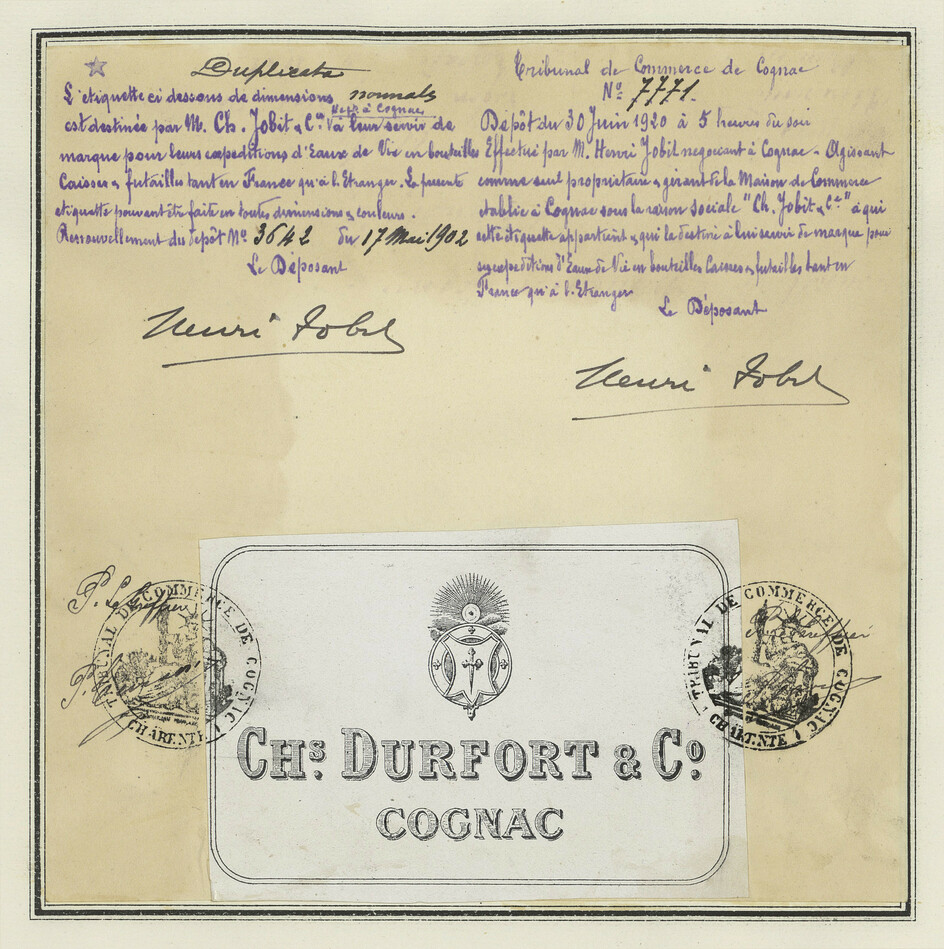 Duplicata
L'étiquette ci dessous de dimensions normales
Negt à Cognac
est destinée par M. Ch. Jobit & Cie à leur servir de
marque pour leurs expéditions d'Eaux de Vie en bouteilles
Caisses & futailles tant en France qu'à l'Etranger. La présente
étiquette pouvant être faite en toutes dimensions & couleurs.
Renouvellement du dépôt No. 3642 du 17 Mai 1902
Le Déposant
Henri Jobit
Tribunal de Commerce de Cognac
No. 7771.
Dépôt du 30 Juin 1920 à 5 heures du soir
Effectué par M. Henri Jobit négociant à Cognac - Agissant
comme seul propriétaire & gérant de la Maison de Commerce
établie à Cognac sous la raison sociale "Ch. Jobit & Cie" à qui
cette étiquette appartient & qui la destine à lui servir de marque pour
ses expéditions d'Eaux de Vie en bouteilles Caisses & futailles tant en
France qu'à l'Etranger
Le Déposant
Henri Jobit
TRIBUNAL DE COMMERCE DE COGNAC
CHARENTE
TRIBUNAL DE COMMERCE DE COGNAC
CHARENTE
CHs. DURFORT & Co.
COGNAC